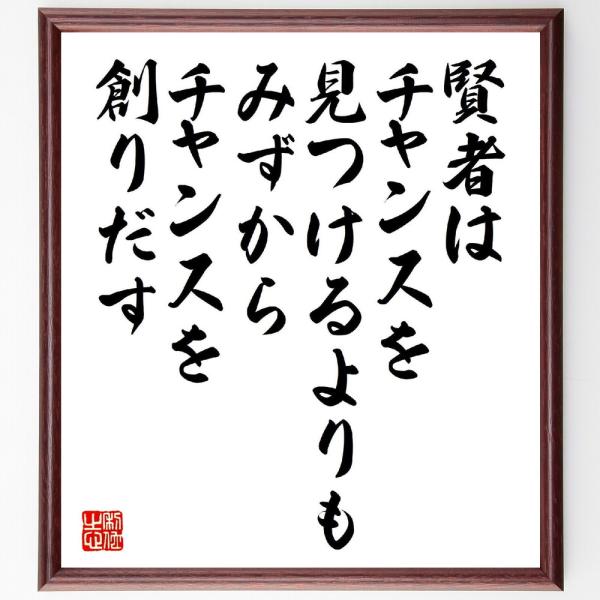 賢者は
チャンスを
見つけるよりも
みずから
チャンスを
創りだす